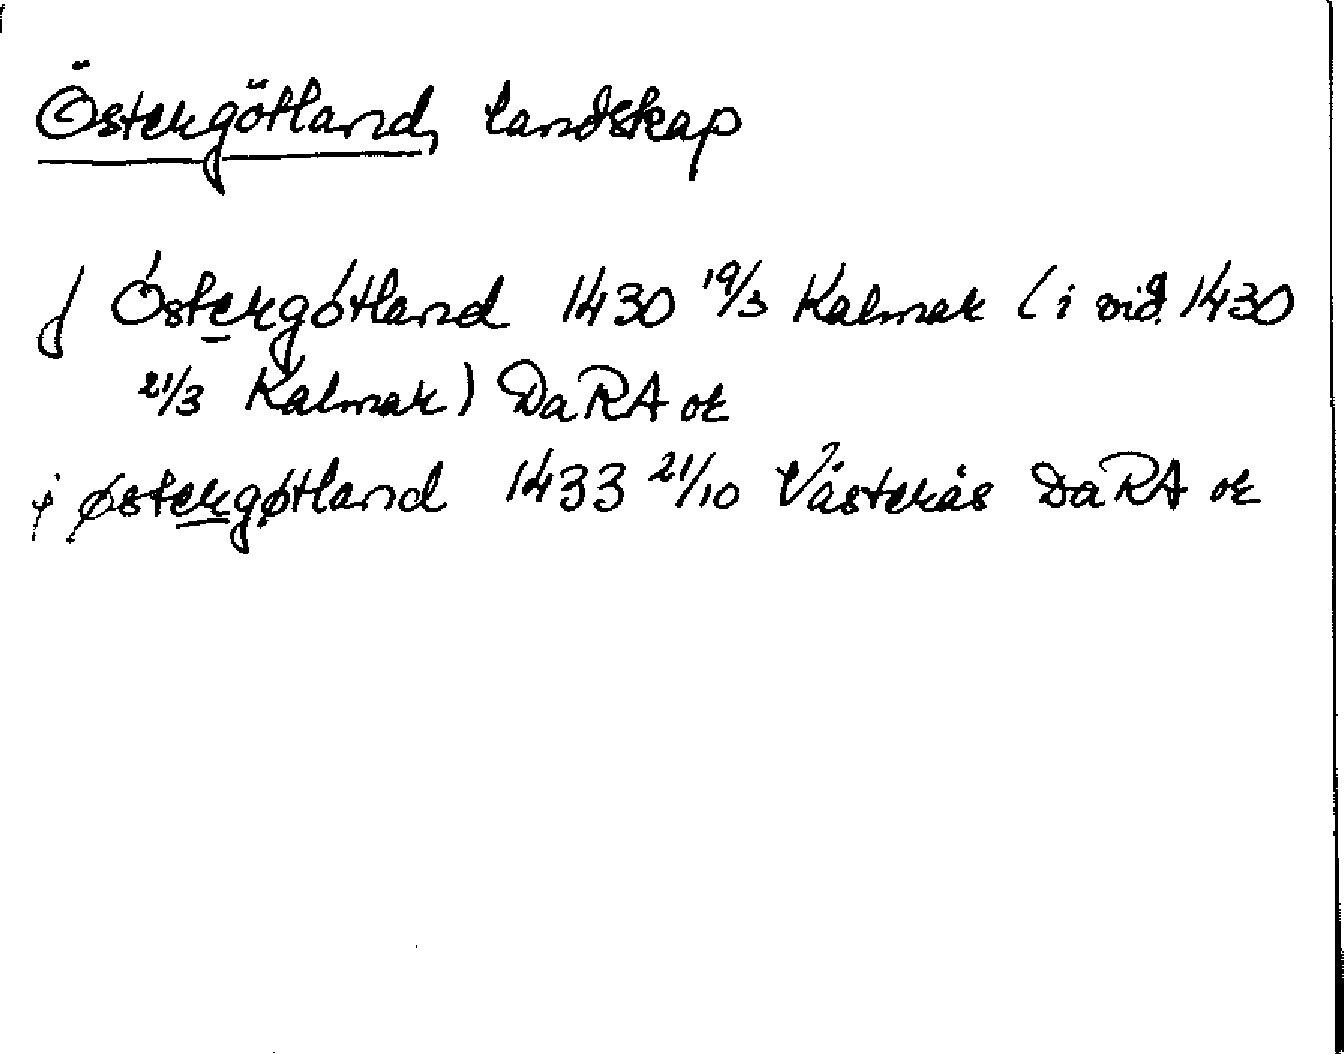 Östergötland, landskap
j Óstergótland 1430 19/3 Kalmar (i vid. 1430
21/3 Kalmar) DaRA or
i østergøtland 1433 21/10 Västerås DaRA or